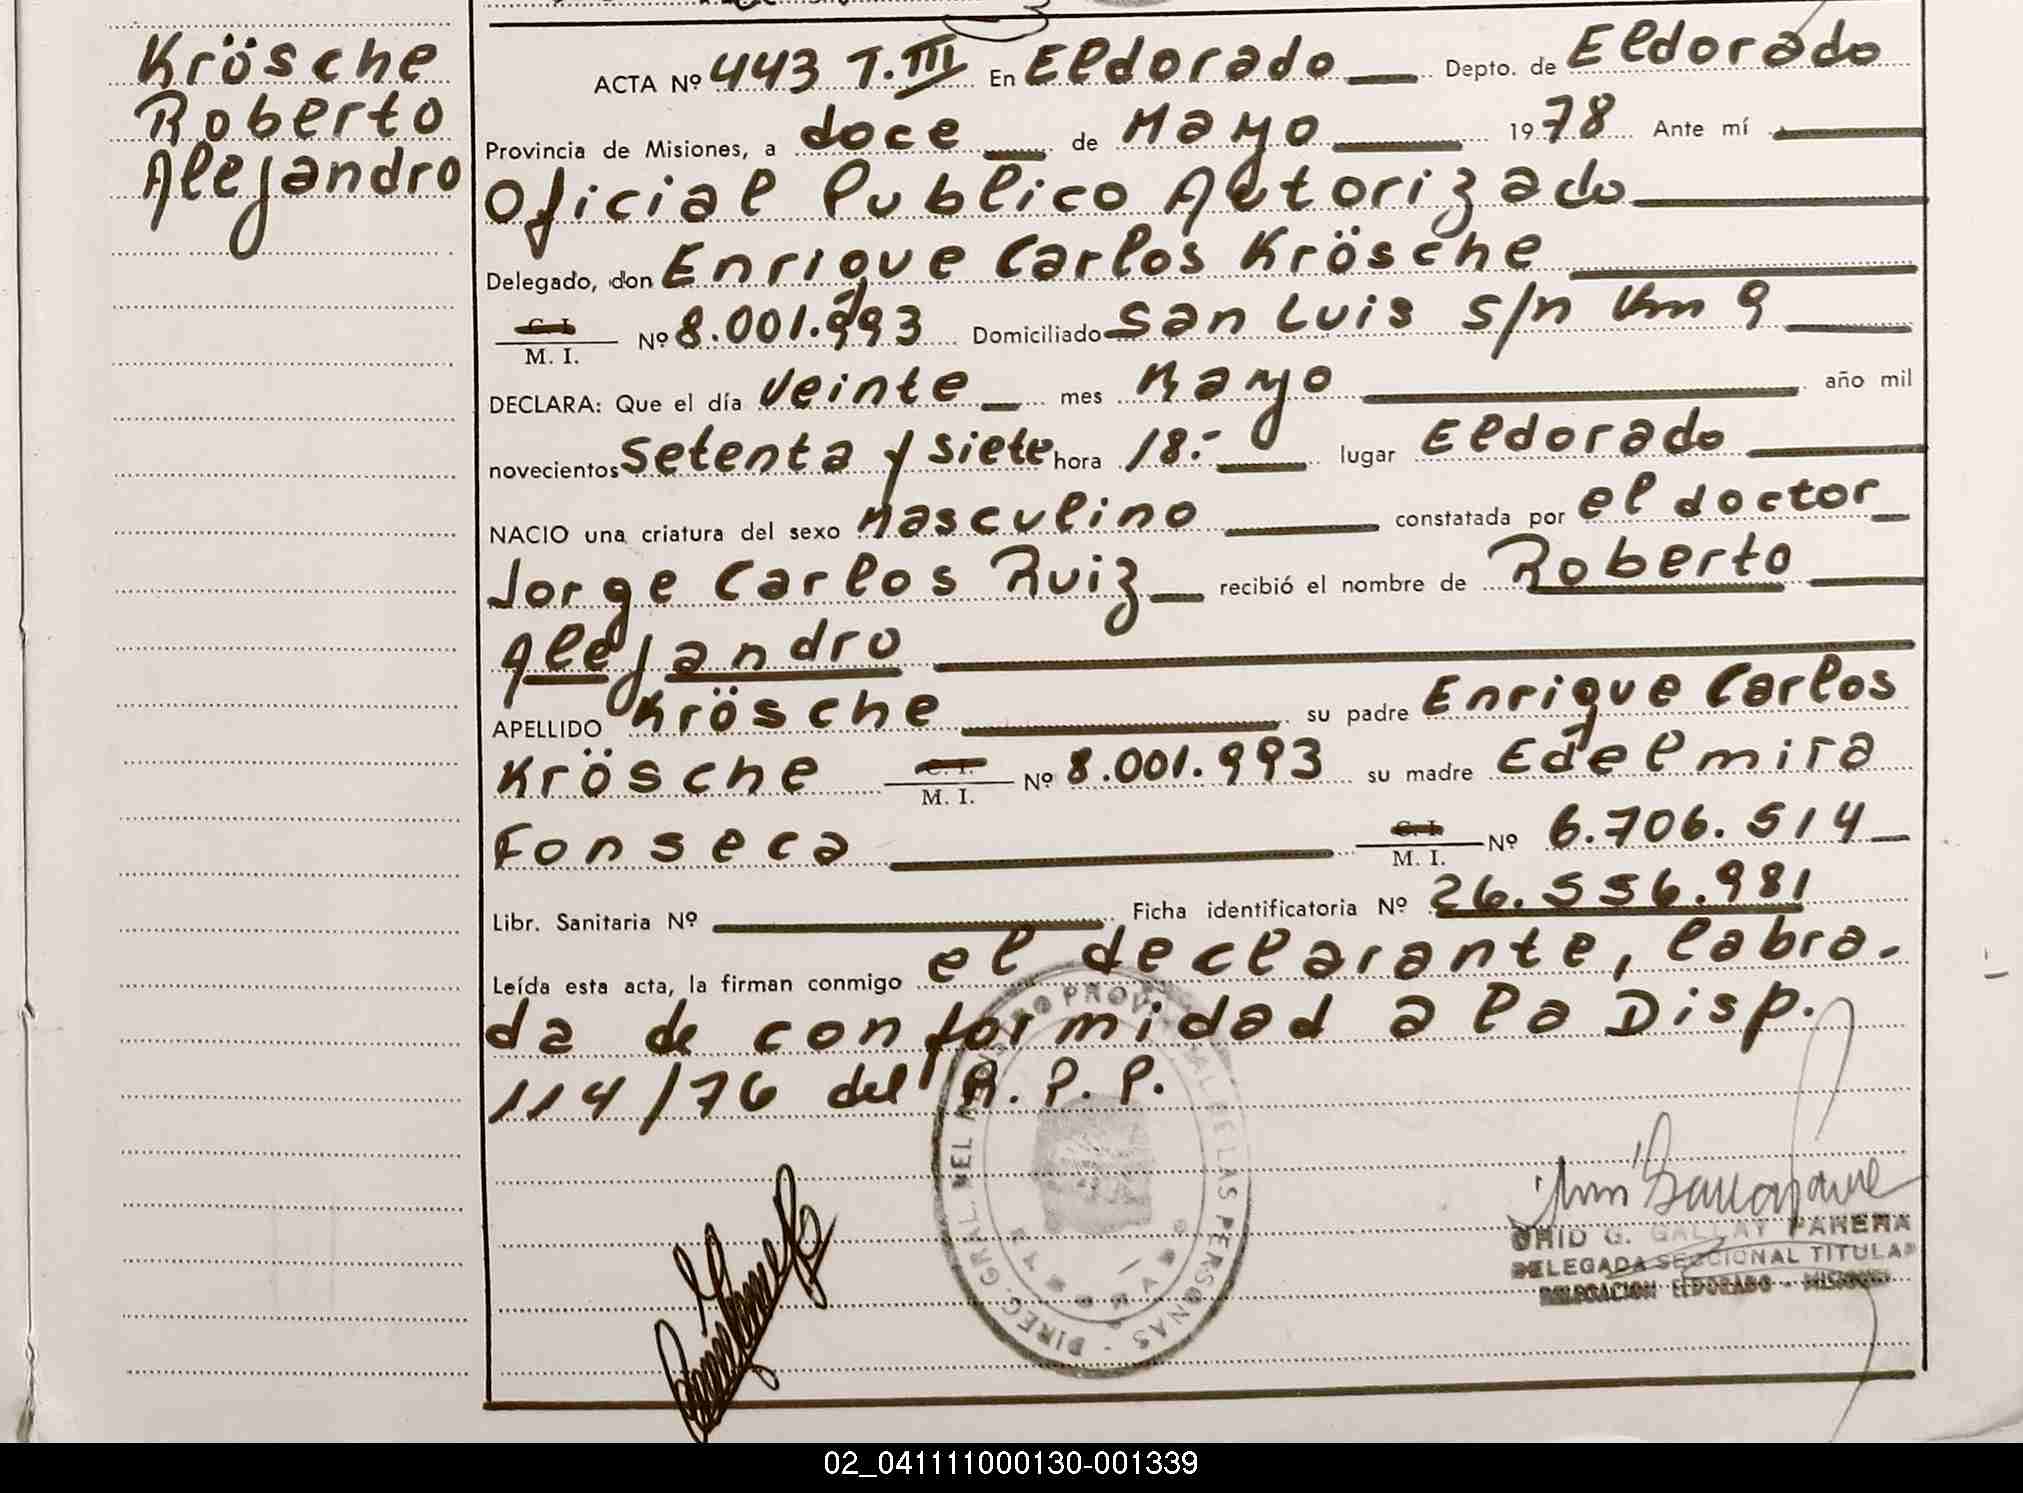 Krösche
Roberto
Alejandro
ACTA Nº 443 T.III En Eldorado Depto. de Eldorado
Provincia de Misiones, a doce de Mayo 1978 Ante mí
Oficial Publico Autorizado
Delegado, don Enrique Carlos Krösche
C. I.
M. I. Nº 8.001.993 Domiciliado San Luis s/n Km 9
DECLARA: Que el día veinte mes Mayo año mil
novecientos setenta y siete hora 18:- lugar Eldorado
NACIO una criatura del sexo Masculino constatada por el doctor
Jorge Carlos Ruiz recibió el nombre de Roberto
Alejandro
APELLIDO Krösche su padre Enrique Carlos
Krösche C. I. M. I. Nº 8.001.993 su madre Edelmira
Fonseca C. I. M. I. Nº 6.706.514
Libr. Sanitaria Nº Ficha identificatoria Nº 26.556.981
Leída esta acta, la firman conmigo el declarante, labra-
da de conformidad a la Disp.
114/76 del R.P.P.
DIREC. GRAL. DEL REGISTRO PROVINCIAL DE LAS PERSONAS
G. GALLAY PARERA
DELEGADA SECCIONAL TITULAR
DELEGACION ELDORADO - MISIONES
02_041111000130-001339